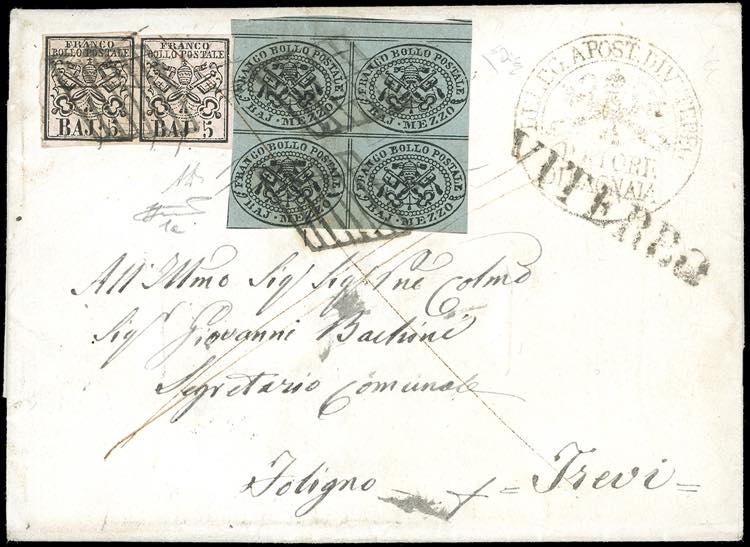 FRANCO
BOLLO POSTALE
BAJ. 5
FRANCO
BOLLO POSTALE
BAJ 5
FRANCO BOLLO POSTALE
BAJ. MEZZO
FRANCO BOLLO POSTALE
BAJ. MEZZO
FRANCO BOLLO POSTALE
BAJ. MEZZO
FRANCO BOLLO POSTALE
BAJ. MEZZO
LEG. APOST. DI VITERBO
VITERBO
All' Illmo Sig Sig Pne Colmo
Sig Giovanni
Segretario Comunale
Foligno = Trevi =